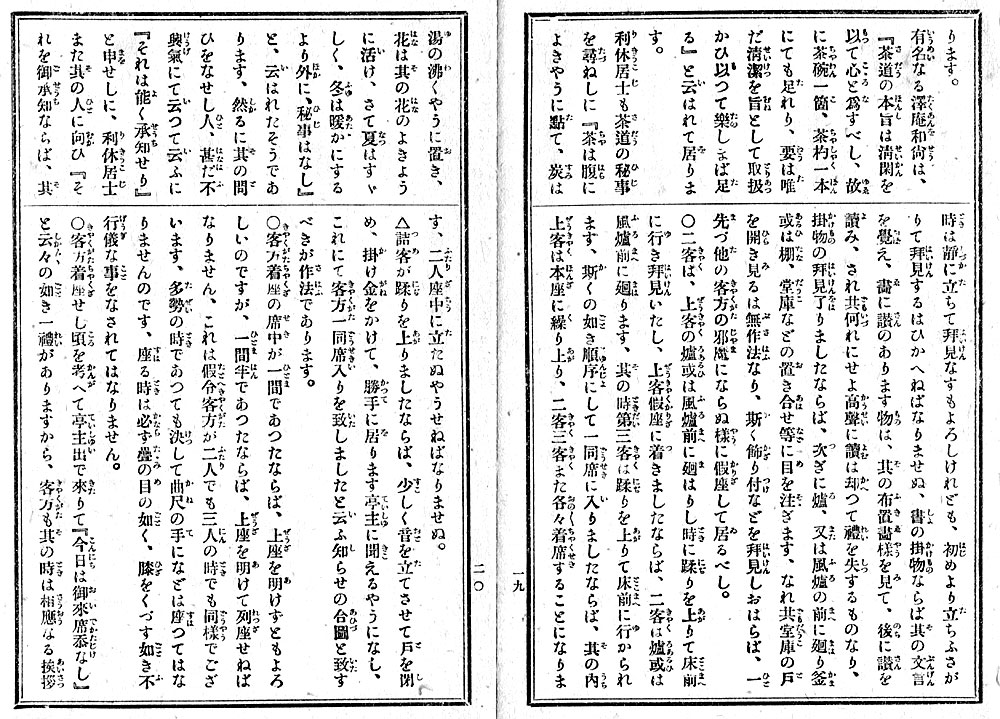 ります。
有名なる澤庵和尙は、
『茶道の本旨は淸閑を
以て心と爲すべし、故
に茶碗一箇、茶杓一本
にても足れり、要は唯
だ淸潔を旨として取扱
かひ以つて樂しまば足
る』と云はれて居りま
す。
利休居士も茶道の秘事
を尋ねしに『茶は腹に
よきやうに點て、炭は
時は靜に立ちて拜見なすもよろしけれども、初めより立ちふさが
りて拜見するはひかへねばなりませぬ、書の掛物ならば其の文言
を覺え、畵に讃のあります物は、其の布置畵樣を見て、後に讃を
讀み、され共何れにせよ高聲に讀は却つて禮を失するものなり、
掛物の拜見了りましたならば、次ぎに爐、又は風爐の前に廻り釜
或は棚、堂庫などの置き合せ等に目を注ぎます、なれ共堂庫の戸
を開き見るは無作法なり、斯く飾り付などを拜見しおはらば、一
先づ他の客方の邪魔にならぬ樣に假座して居るべし。
〇二客は、上客の爐或は風爐前に廻はりし時に蹂りを上りて床前
に行き拜見いたし、上客假座に着きましたならば、二客は爐或は
風爐前に廻ります、其の時第三客は蹂りを上りて床前に行られ
ます、斯くの如き順序にして一同席に入りましたならば、其の內
上客は本座に繰り上り、二客三客また各々着席することになりま
一九
湯の沸くやうに置き、
花は其の花のよきよう
に活け、さて夏はすヾ
しく、冬は暖かにする
より外に、秘事はなし』
と、云はれたそうであ
ります、然るに其の問
ひをなせし人、甚だ不
興氣にて云つて云ふに
『それは能く承知せり』
と申せしに、利休居士
また其の人に向ひ『そ
れを御承知ならば、其
す、二人座中に立たぬやうせねばなりませぬ。
△詰客が蹂りを上りましたならば、少しく音を立てさせて戸を閉
め、掛け金をかけて、勝手に居ります亭主に聞えるやうになし、
これにて客方一同席入りを致しましたと云ふ知らせの合圖と致す
べきが作法であります。
〇客方着座の席中が一間であつたならば、上座を明けずともよろ
しいのですが、一間半であつたならば、上座を明けて列座せねば
なりません、これは假令客方が二人でも三人の時でも同樣でござ
います、多勢の時であつても決して曲尺の手になどは座つてはな
りませんのです、座る時は必ず疊の目の如く、膝をくづす如き不
行儀な事をなされてはなりません。
〇客方着座せし頃を考へて亭主出で來りて『今日は御來席忝なし』
と云々の如き一禮がありますから、客方も其の時は相應なる挨拶
二〇